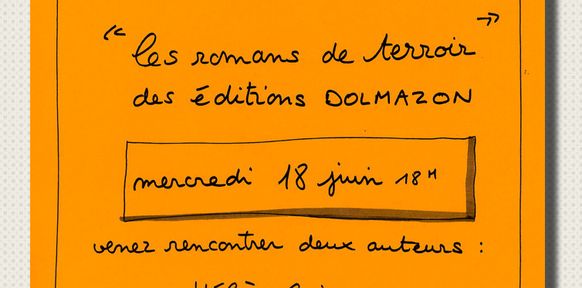 “ les romans de terroir ”
des éditions DOLMAZON
mercredi 18 juin 18H
venez rencontrer deux auteurs :